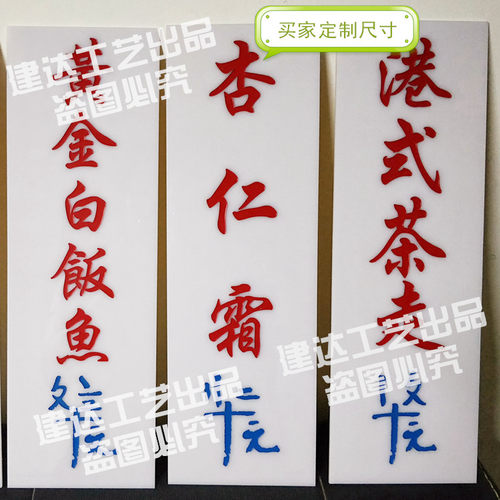 买家定制尺寸
建达工艺出品
盗图必究
建达工艺出品
盗图必究
港式茶走
杏仁霜
黃金白飯魚
建达工艺出品
盗图必究
建达工艺出品
盗图必究